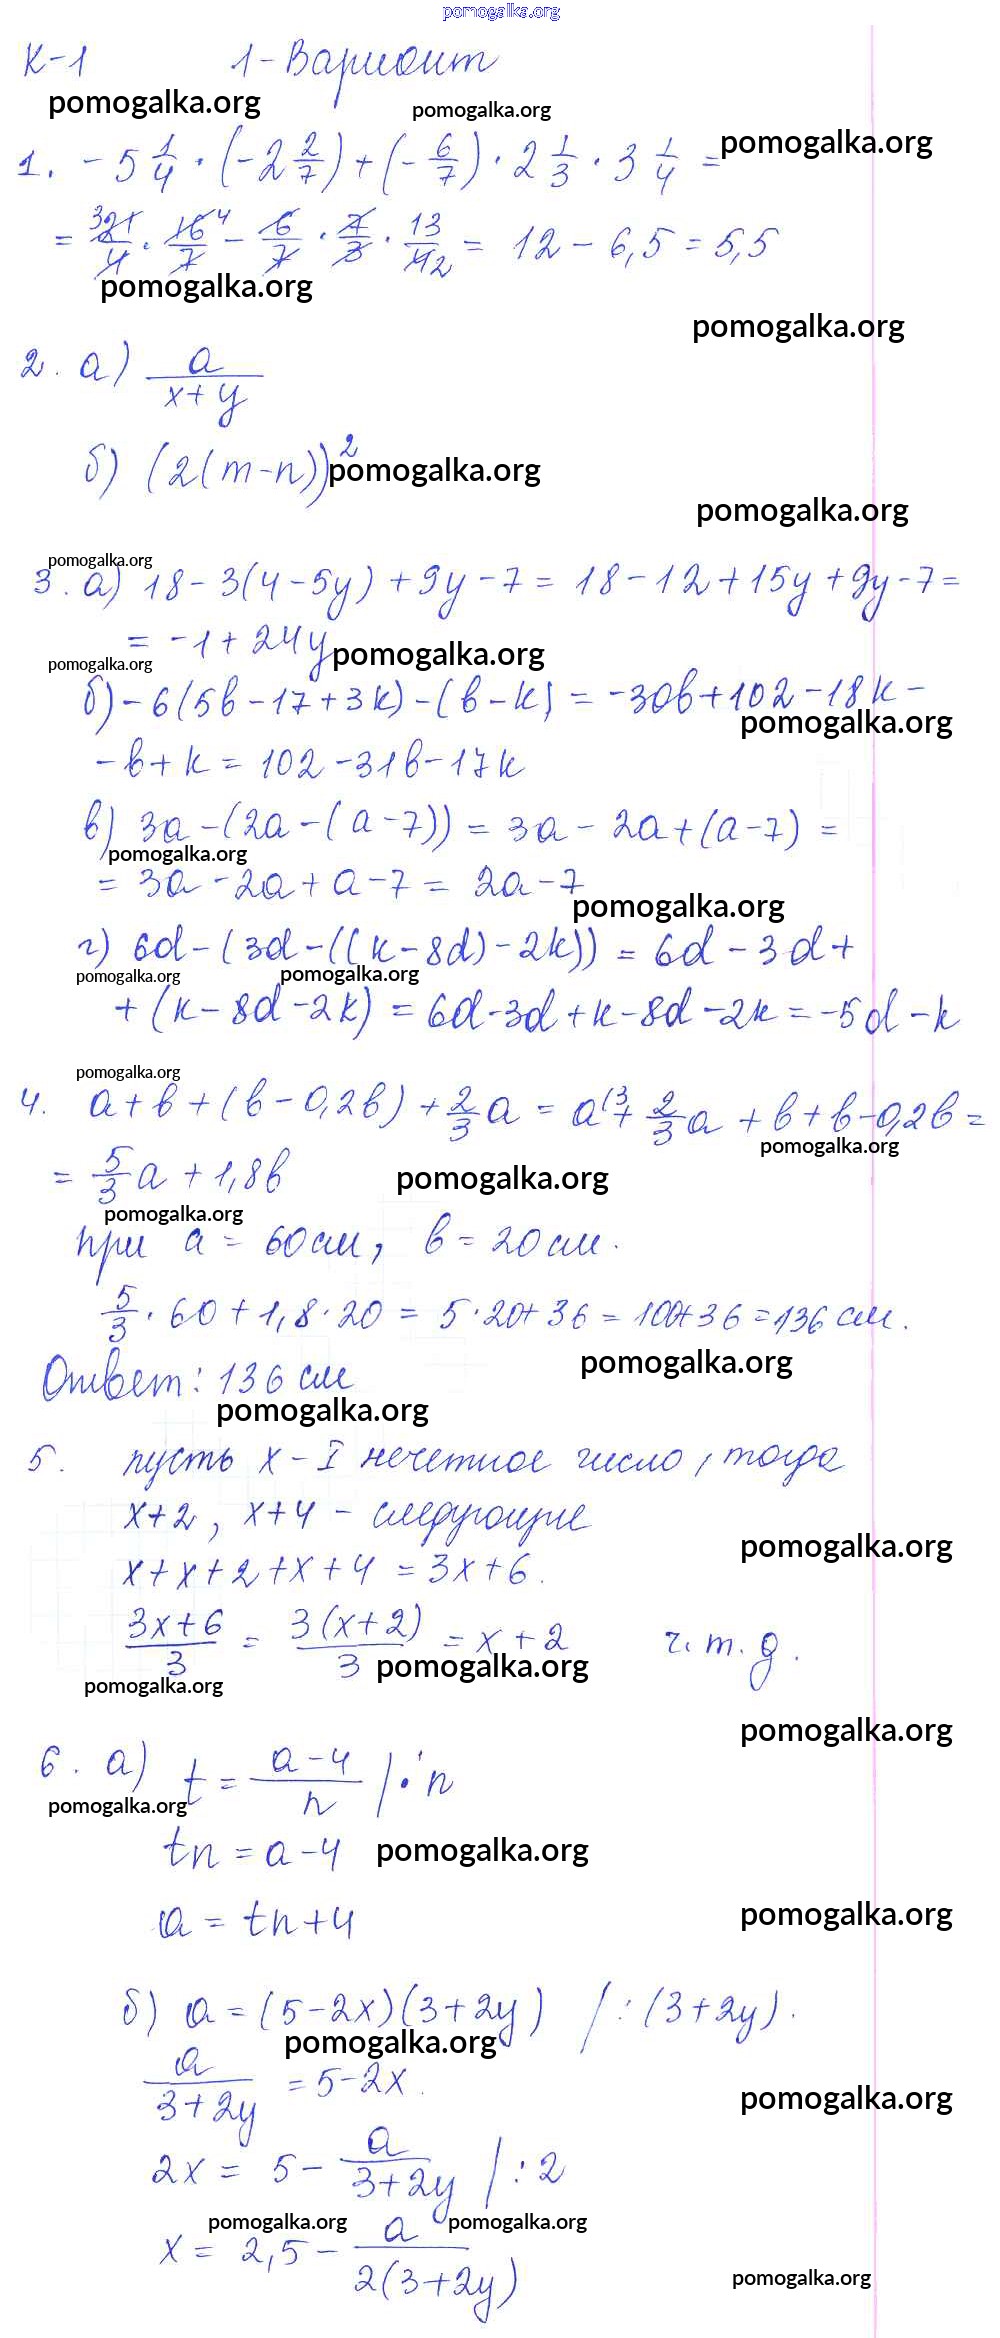 pomogalka.org
К-1 1-Вариант
pomogalka.org pomogalka.org
1. -5 1/4 · (-2 2/7) + (-6/7) · 2 1/3 · 3 1/4 = pomogalka.org
= 21/4 · 16/7 - 6/7 · 7/3 · 13/4 = 12 - 6,5 = 5,5
pomogalka.org
pomogalka.org
2. а) a/(x+y)
б) (2(m-n))² pomogalka.org
pomogalka.org
pomogalka.org
3. а) 18 - 3(4-5y) + 9y - 7 = 18 - 12 + 15y + 9y - 7 =
= -1 + 24y pomogalka.org
pomogalka.org
б) -6(5b - 17 + 3k) - (b - k) = -30b + 102 - 18k -
pomogalka.org
- b + k = 102 - 31b - 17k
в) 3a - (2a - (a-7)) = 3a - 2a + (a-7) =
pomogalka.org
= 3a - 2a + a - 7 = 2a - 7
pomogalka.org
г) 6d - (3d - ((k-8d) - 2k)) = 6d - 3d +
pomogalka.org pomogalka.org
+ (k - 8d - 2k) = 6d - 3d + k - 8d - 2k = -5d - k
pomogalka.org
4. a + b + (b - 0,2b) + 2/3 a = a(3 + 2/3 a + b + b - 0,2b =
pomogalka.org
= 5/3 a + 1,8b pomogalka.org
pomogalka.org
при a = 60 см, b = 20 см.
5/3 · 60 + 1,8 · 20 = 5 · 20 + 36 = 100 + 36 = 136 см.
pomogalka.org
Ответ: 136 см
pomogalka.org
5. пусть x - I нечетное число, тогда
x+2, x+4 - следующие
pomogalka.org
x + x + 2 + x + 4 = 3x + 6.
(3x+6)/3 = 3(x+2)/3 = x + 2 ч.т.д.
pomogalka.org
pomogalka.org
pomogalka.org
6. а) t = (a-4)/n /· n
pomogalka.org
tn = a - 4 pomogalka.org
a = tn + 4 pomogalka.org
б) a = (5-2x)(3+2y) /:(3+2y).
pomogalka.org
a/(3+2y) = 5-2x.
pomogalka.org
2x = 5 - a/(3+2y) /:2
pomogalka.org pomogalka.org
x = 2,5 - a/(2(3+2y))
pomogalka.org